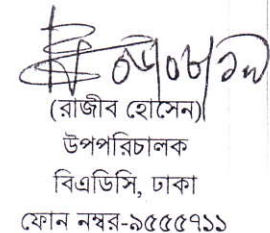 ০৬/০৮/১৮
(রাজীব হোসেন)
উপপরিচালক
বিএডিসি, ঢাকা
ফোন নম্বর-৯৫৫৫৭১১